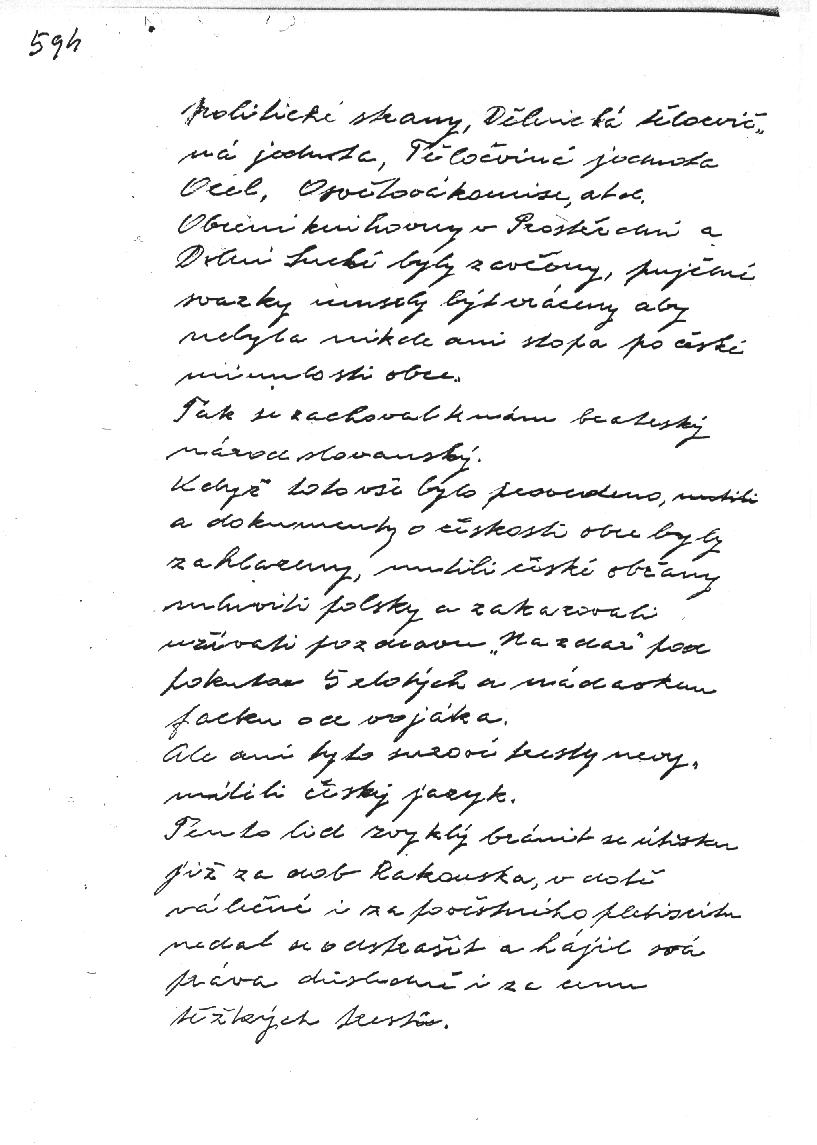 59h
politické strany, Dělnická tělocvič„
ná jednota, Tělocvičná jednota
Orel, Osvětová komise, atd.
Obecní knihovny v Prostřední a
Dolní Suché byly zavřeny, pujčené
svazky musely být vráceny aby
nebyla nikde ani stopa po české
minulosti obce.
Tak se zachoval k nám bratrský
národ slovanský.
Když toto vše bylo provedeno, nutili
a dokumenty o českosti obce byly
zahlazeny, nutili české občany
mluviti polsky a zakazovali
užívati pozdravu „Nazdar" pod
pokutou 5 zlotých a nádavkem
facku od vojáka.
Ale ani tyto surové tresty nevy„
mýtili český jazyk.
Tento lid zvyklý bránit se útisku
již za dob Rakouska, v době
válečné i za popřevratného plebiscitu
nedal se odstrašit a hájil svá
práva důsledně i za cenu
těžkých trestů.